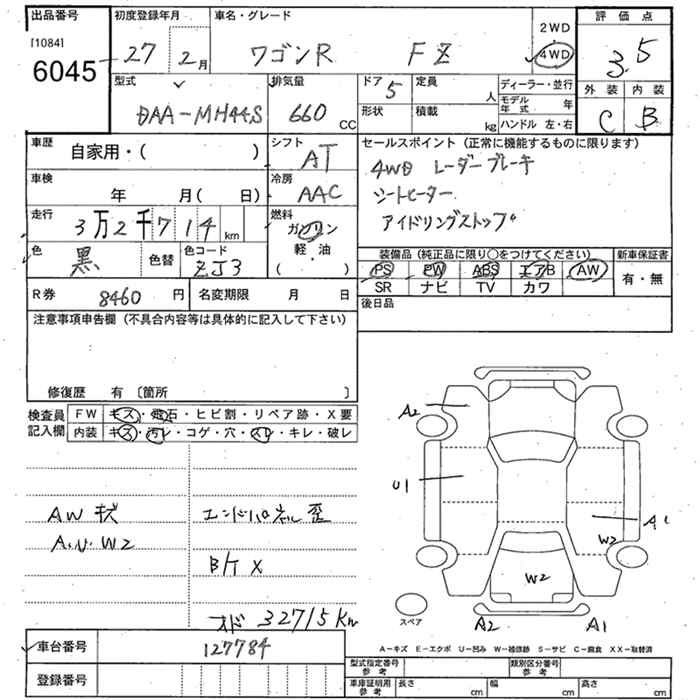 出品番号
[1084]
6045
初度登録年月
27 2月
車名・グレード
ワゴンR FZ
2WD
4WD
評価点
3.5
外装 内装
C B
型式
DAA-MH44S
排気量
660 CC
ドア 5
形状
定員 人
積載 kg
ディーラー・並行
モデル年式 年
ハンドル 左・右
車歴
自家用・( )
シフト
AT
セールスポイント (正常に機能するものに限ります)
4WD レーダーブレーキ
シートヒーター
アイドリングストップ
車検
年 月( 日)
冷房
AAC
走行
3万2千714 km
燃料
ガソリン
軽・油
( )
色
黒
色替
色コード
ZJ3
装備品 (純正品に限り○をつけてください)
PS PW ABS エアB AW
SR ナビ TV カワ
新車保証書
有・無
R券 8460 円
名変期限 月 日
後日品
注意事項申告欄 (不具合内容等は具体的に記入して下さい)
修復歴 有 〔箇所 〕
検査員
記入欄
FW キズ・飛石・ヒビ割・リペア跡・X要
内装 キズ・汚レ・コゲ・穴・スレ・キレ・破レ
AW キズ
A.U.W2
エンドパネル歪
Bケ X
オド 32715Km
A2
U1
A1
W2
W2
A2
A1
スペア
A-キズ E-エクボ U-凹み W-補修跡 S-サビ C-腐食 XX-取替済
車台番号
127784
登録番号
型式指定番号
参考
類別区分番号
参考
車庫証明用
参考
長さ cm
幅 cm
高さ cm